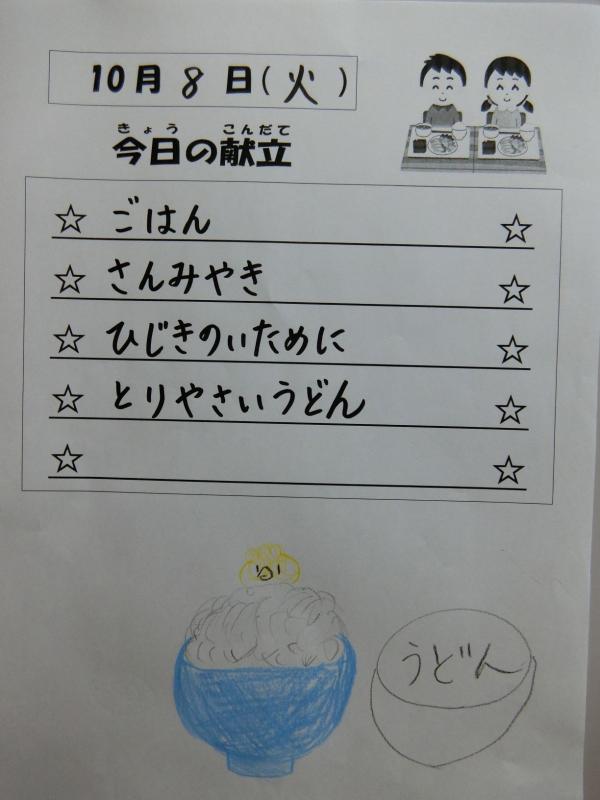 10月8日(火)
きょう こんだて
今日の献立
☆ ごはん ☆
☆ さんみやき ☆
☆ ひじきのいために ☆
☆ とりやさいうどん ☆
☆ ☆
うどん